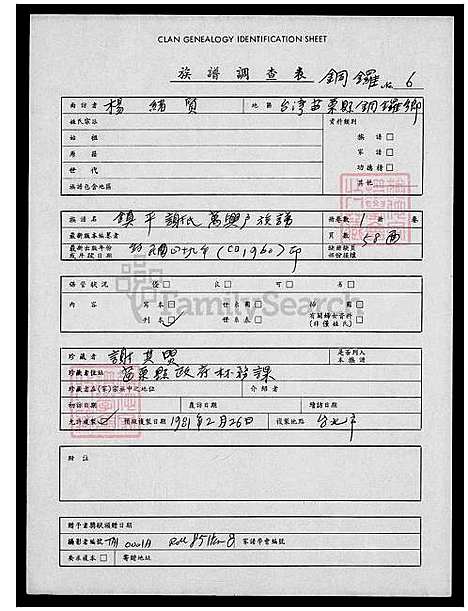 CLAN GENEALOGY IDENTIFICATION SHEET
族譜調查表 銅鑼 No. 6
面訪者 楊緒賢 地區 台灣苗栗縣銅鑼鄉
姓氏宗派 資料類別
始祖 族譜□
原籍 家譜□
世代 功德榜□
族譜包含地區 其他
族譜名 鎮平謝氏萬興戶族譜 冊卷數 冊 卷
最新版本編纂者 頁數 58面
最新出版年份或片段日期 民國四十九年(1960)印 缺漏缺頁部份核補
保管狀況 優□ 良□ 可□ 劣□
內容 寫本□ 世系圖□ 插圖□
刊本 世系表□ 有關婦女資料(非僅姓氏)□
FamilySearch
珍藏者 謝其罡 是否列入本族譜
珍藏者住址 苗栗縣政府林務課
珍藏者在(家)宗族中之地位 介紹者
初訪日期 直訪日期 續訪日期
允許複製 預經複製日期 1981年2月26日 複製地點 台北市
附註
贈予者獎狀頒贈日期
攝影者編號 TM 0001A Roll 85 Item 8 家譜學會編號
要求複本□ 寄贈地址